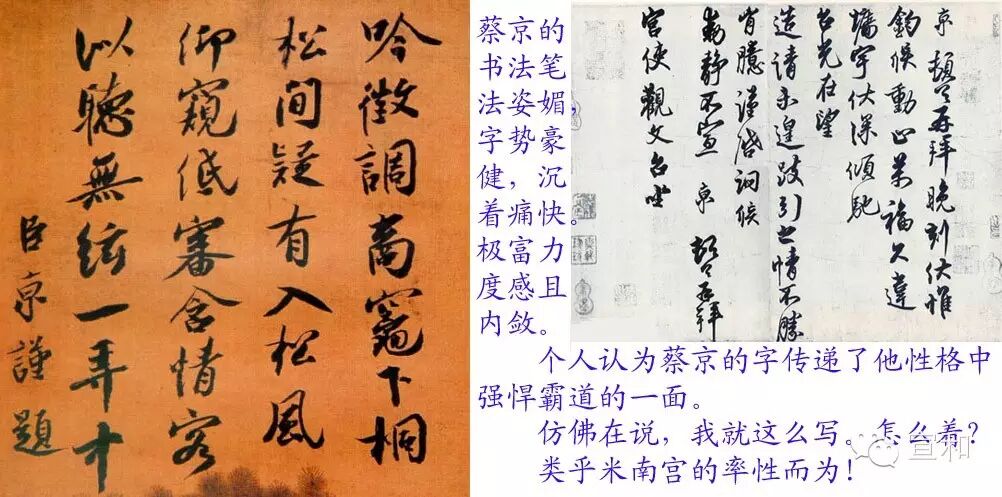 吟徵調商竈下桐
松間疑有入松風
仰窺低審含情客
以聽無絃一弄中
臣京謹題
蔡京的
书法笔
法姿媚，
字势豪
健，沉
着痛快。
极富力
度感且
内敛。
京 頓首再拜晚刻伏惟
鈞候動止萬福久違
牆宇伏深傾馳
台光在望
造請未遑跂引之情不勝
胷臆謹啟詞候
動靜不宣 京 頓首再拜
宮使觀文台坐
个人认为蔡京的字传递了他性格中
强悍霸道的一面。
仿佛在说，我就这么写。怎么着？
类乎米南宫的率性而为！
宣和